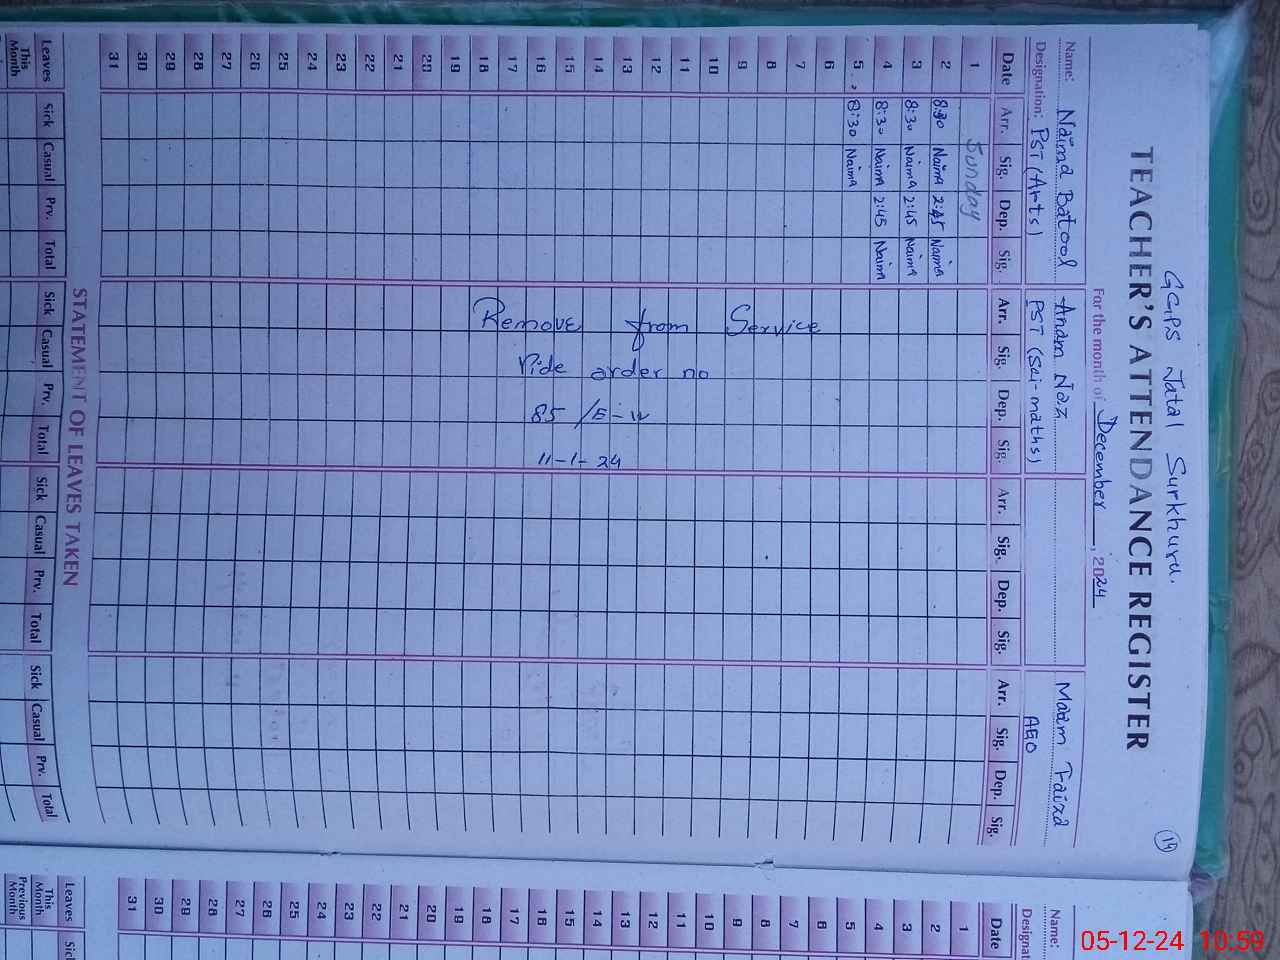 GGPS Jatal Surkhuru.
14
TEACHER'S ATTENDANCE REGISTER
For the month of December, 2024
Name: Naima Batool Anam Naz Maam Faiza
Designation: PST (Arts) PST (Sci-maths) AEO
Date Arr. Sig. Dep. Sig. Arr. Sig. Dep. Sig. Arr. Sig. Dep. Sig. Arr. Sig. Dep. Sig.
1 Sunday
2 8:30 Naima 2:45 Naima
3 8:30 Naima 2:45 Naima
4 8:30 Naima 2:45 Naima
5 8:30 Naima
6
7
8
9
10
11
12
13
14
15
16
17
18
19
20
21
22
23
24
25
26
27
28
29
30
31
Remove from Service
Vide order no
85
11-1-24
STATEMENT OF LEAVES TAKEN
Leaves Sick Casual Prv. Total Sick Casual Prv. Total Sick Casual Prv. Total Sick Casual Prv. Total
This Month
Name:
Designat
Date
1
2
3
4
5
6
7
8
9
10
11
12
13
14
15
16
17
18
19
20
21
22
23
24
25
26
27
28
29
30
31
Leaves Sick
This Month
Previous Month
05-12-24 10:59